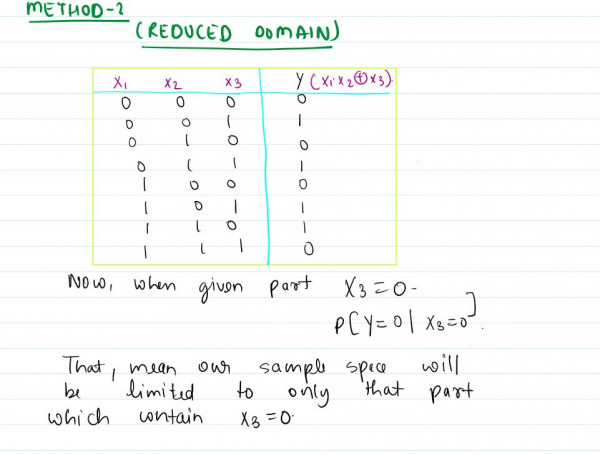 METHOD-2
(REDUCED DOMAIN)
X1 X2 X3 Y (X1·X2⊕X3).
0 0 0 0
0 0 1 1
0 1 0 0
0 1 1 1
1 0 0 0
1 0 1 1
1 1 0 1
1 1 1 0
Now, when given part X3=0.
P[Y=0 | X3=0].
That, mean our sample space will
be limited to only that part
which contain X3=0.